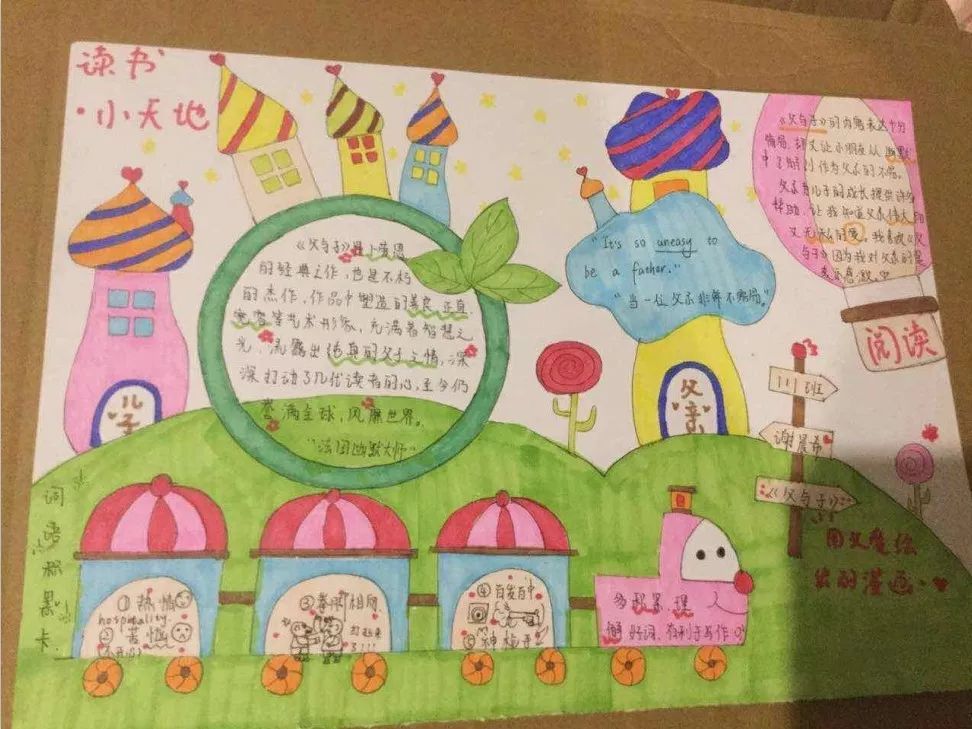 读书
·小天地
《父与子》是卜劳恩
的经典之作，也是不朽
的杰作，作品中塑造的善良、正直、
宽容等艺术形象，充满着智慧之
光，流露出纯真的父子之情，深
深打动了几代读者的心，至今仍
誉满全球，风靡世界。
"法国幽默大师"
"It's so uneasy to
be a father."
"当一位父亲非常不容易。"
《父与子》的内容表达十分
幽默，却又让小朋友从幽默
中了解到作为父亲的不易。
父亲为儿子的成长提供许多
帮助，让我知道父亲伟大而
又无私的爱。我喜欢《父
与子》因为我对父亲的爱
阅读
儿子
父亲
111班
谢晨希
《父与子》
用父爱绘
出的漫画
词语积累卡
①热情
hospitality.
②苦恼
不开心
③拳脚相网
打起来
了!!!
④百发百中
⑤神枪手
多积累,理
解好词,有利于写作